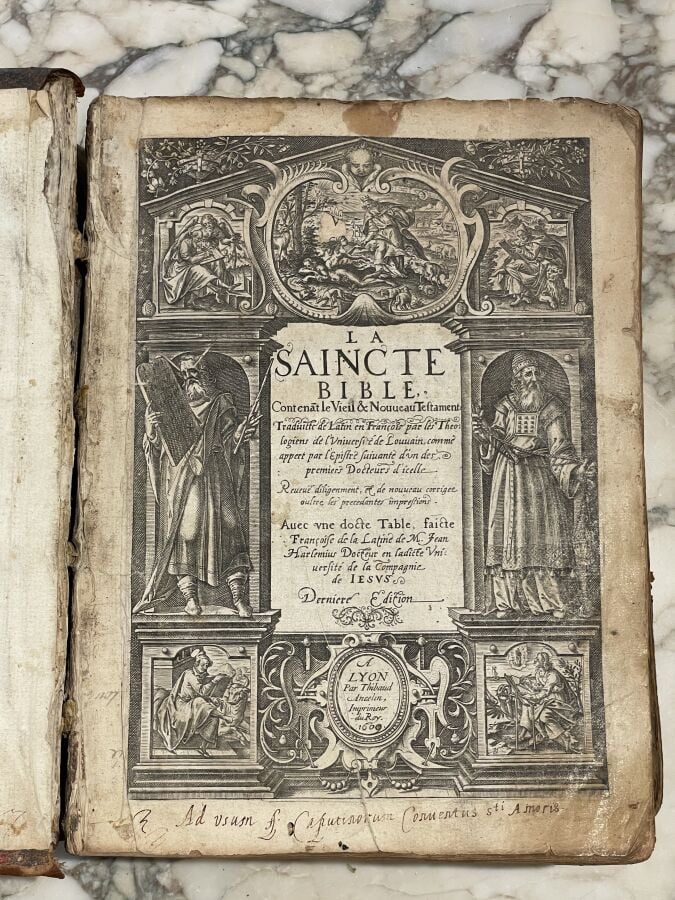 LA
SAINCTE
BIBLE,
Contenãt le Vieil & Nouueau Testament
Traduicte de Latin en François par les Theo
logiens de l'Vniuersité de Louuain, comme
appert par l'Epistre suiuante d'vn des
premiers Docteurs d'icelle
Reueuë diligemment, & de nouueau corrigee
oultre les precedantes impressions.
Auec vne docte Table, faicte
Françoise de la Latine de M. Jean
Harlemius Docteur en ladicte Vni-
uersité de la Compagnie
de IESVS.
Derniere Edition
A
LYON
Par Thibaud
Ancelin,
Imprimeur
du Roy.
Ad vsum Capucinorum Conuentus sti Amoris